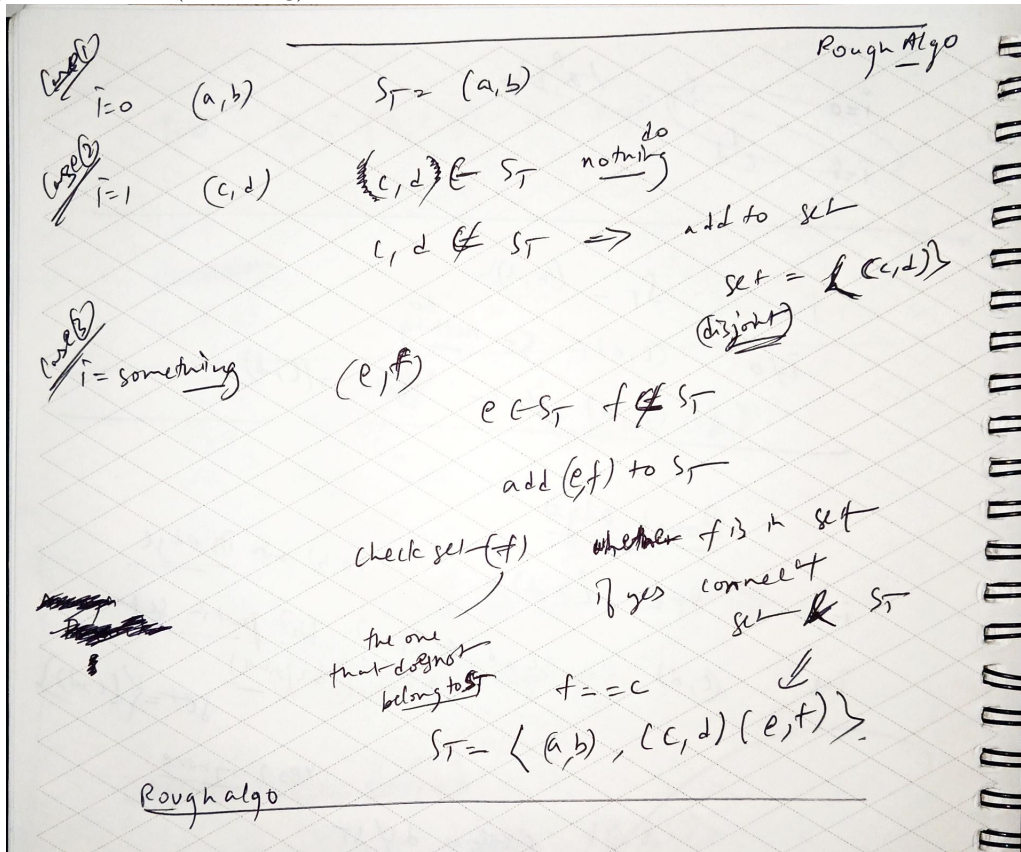 Rough Algo
Case ①
i=0 (a,b) S_T = (a,b)
Case ②
i=1 (c,d) (c,d) ∈ S_T do nothing
c,d ∉ S_T ⇒ add to set
set = {(c,d)}
(disjoint)
Case ③
i = something (e,f)
e ∈ S_T f ∉ S_T
add (e,f) to S_T
check set (f) whether f is in set
if yes connect
set & S_T
the one
that does not
belong to S_T
f == c
S_T = { (a,b), (c,d) (e,f) }
Rough algo